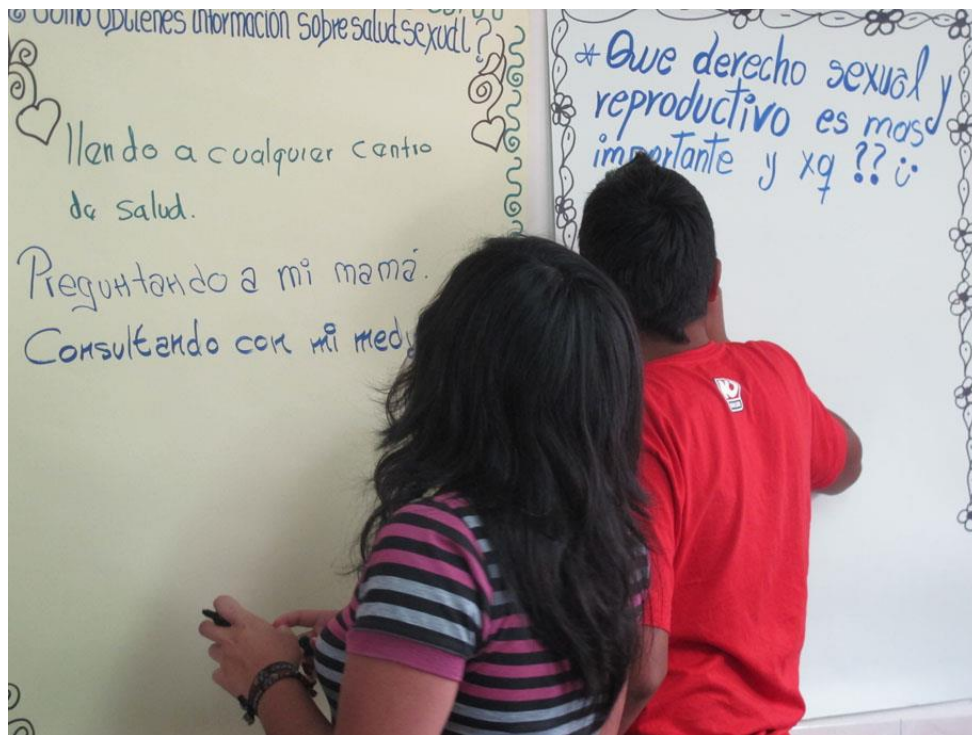 Como obtienes información sobre salud sexual?
llendo a cualquier centro
de salud.
Preguntando a mi mamá.
Consultando con mi
* Que derecho sexual y
reproductivo es mas
importante y xq ??